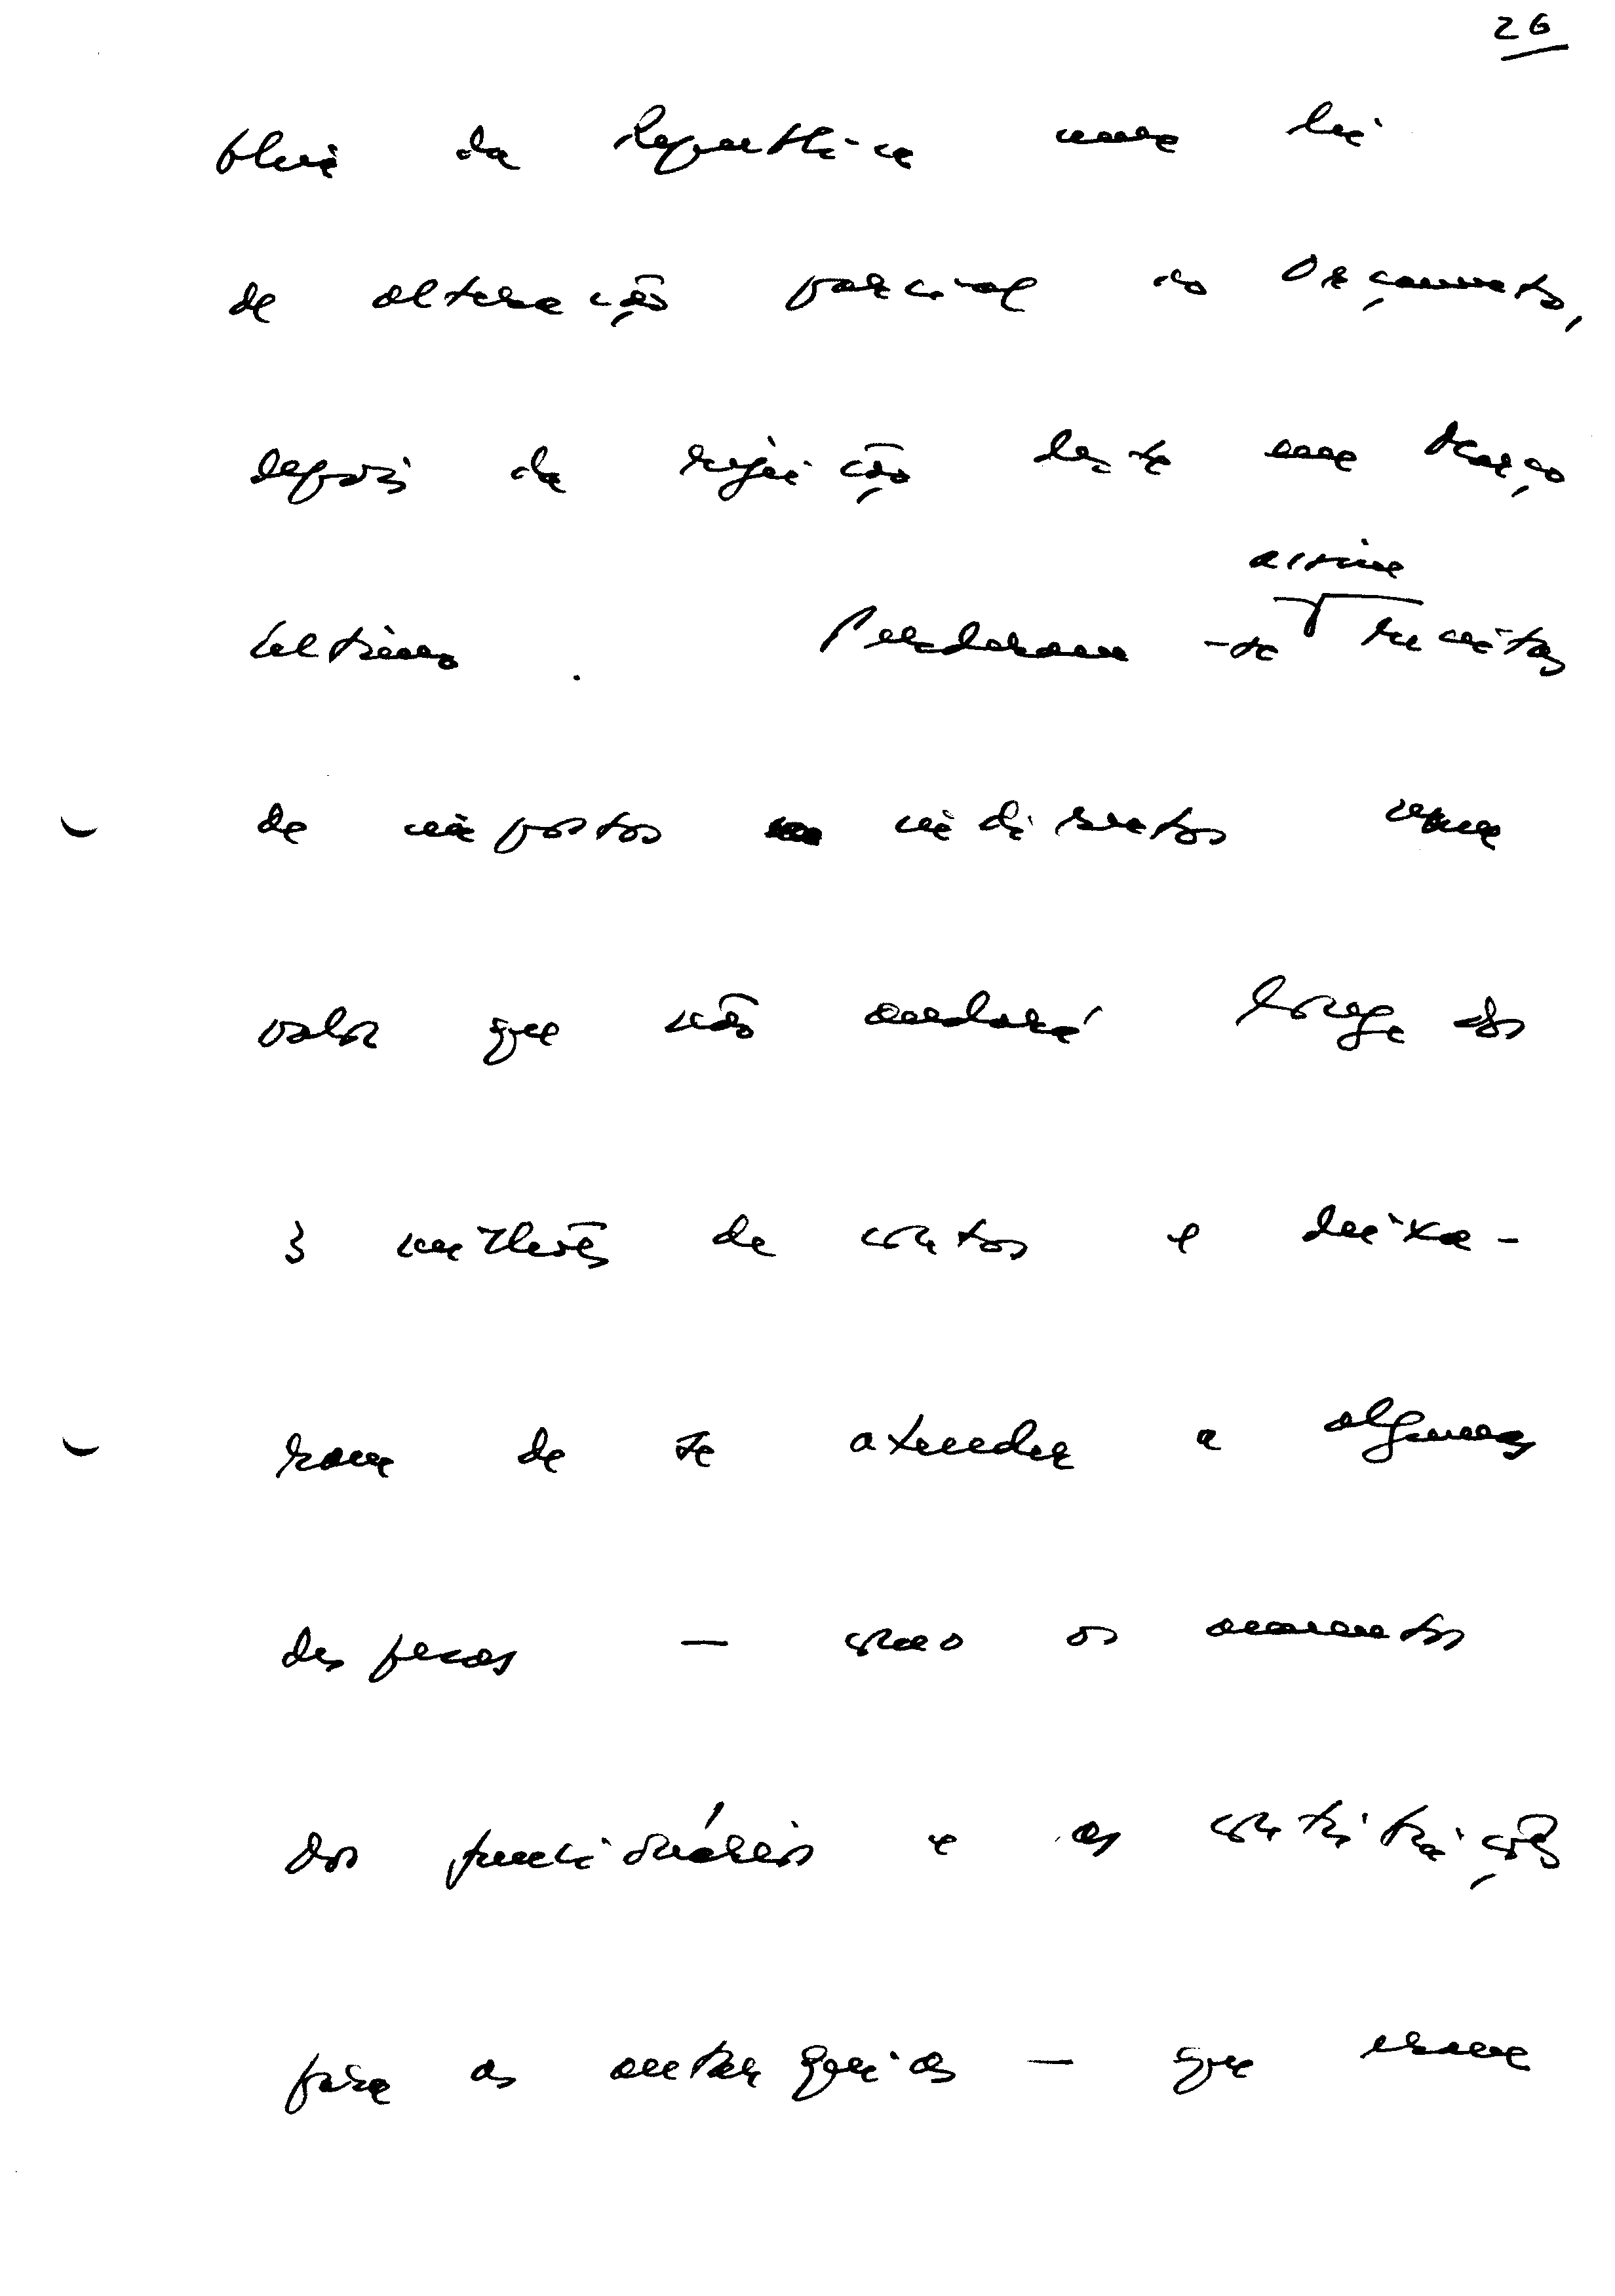 26
bleia da República uma lei
de alteração parcial ao Orçamento,
depois da rejeição deste em Março
assim
último. Perderam-se receitas
de impostos indirectos num
valor que não andará longe dos
3 milhões de contos e deixa-
ram de se atender a algumas
despesas — como os aumentos
dos funcionários e as contribuições
para as autarquias — que eram